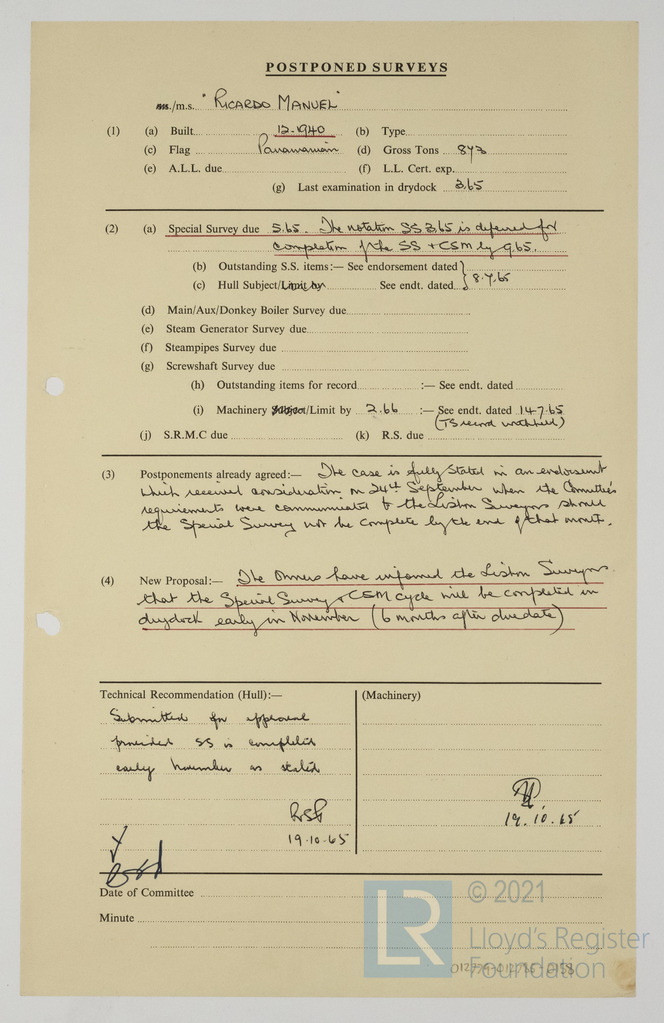 POSTPONED SURVEYS
ss./m.s. "RICARDO MANUEL"
(1) (a) Built 12-1940 (b) Type
(c) Flag Panamanian (d) Gross Tons 873
(e) A.L.L. due (f) L.L. Cert. exp.
(g) Last examination in drydock 3,65
(2) (a) Special Survey due 5,65. The notation SS 3,65 is deferred for
completion of the SS + CSM by 9,65.
(b) Outstanding S.S. items:— See endorsement dated
(c) Hull Subject/Limit by See endt. dated } 8.7.65
(d) Main/Aux/Donkey Boiler Survey due
(e) Steam Generator Survey due
(f) Steampipes Survey due
(g) Screwshaft Survey due
(h) Outstanding items for record :— See endt. dated
(i) Machinery Subject/Limit by 2.66 :— See endt. dated 14.7.65
(TS record withheld)
(j) S.R.M.C due (k) R.S. due
(3) Postponements already agreed:— The case is fully stated in an endorsement
which received consideration on 24th September when the Committee's
requirements were communicated to the Lisbon Surveyors should
the Special Survey not be complete by the end of that month.
(4) New Proposal:— The Owners have informed the Lisbon Surveyors
that the Special Survey + CSM cycle will be completed in
drydock early in November (6 months after due date)
Technical Recommendation (Hull):— (Machinery)
Submitted for approval
provided SS is completed
early November as stated
19-10-65
19.10.65
Date of Committee
Minute
LR
© 2021
Lloyd's Register
Foundation
012779-012785-0158